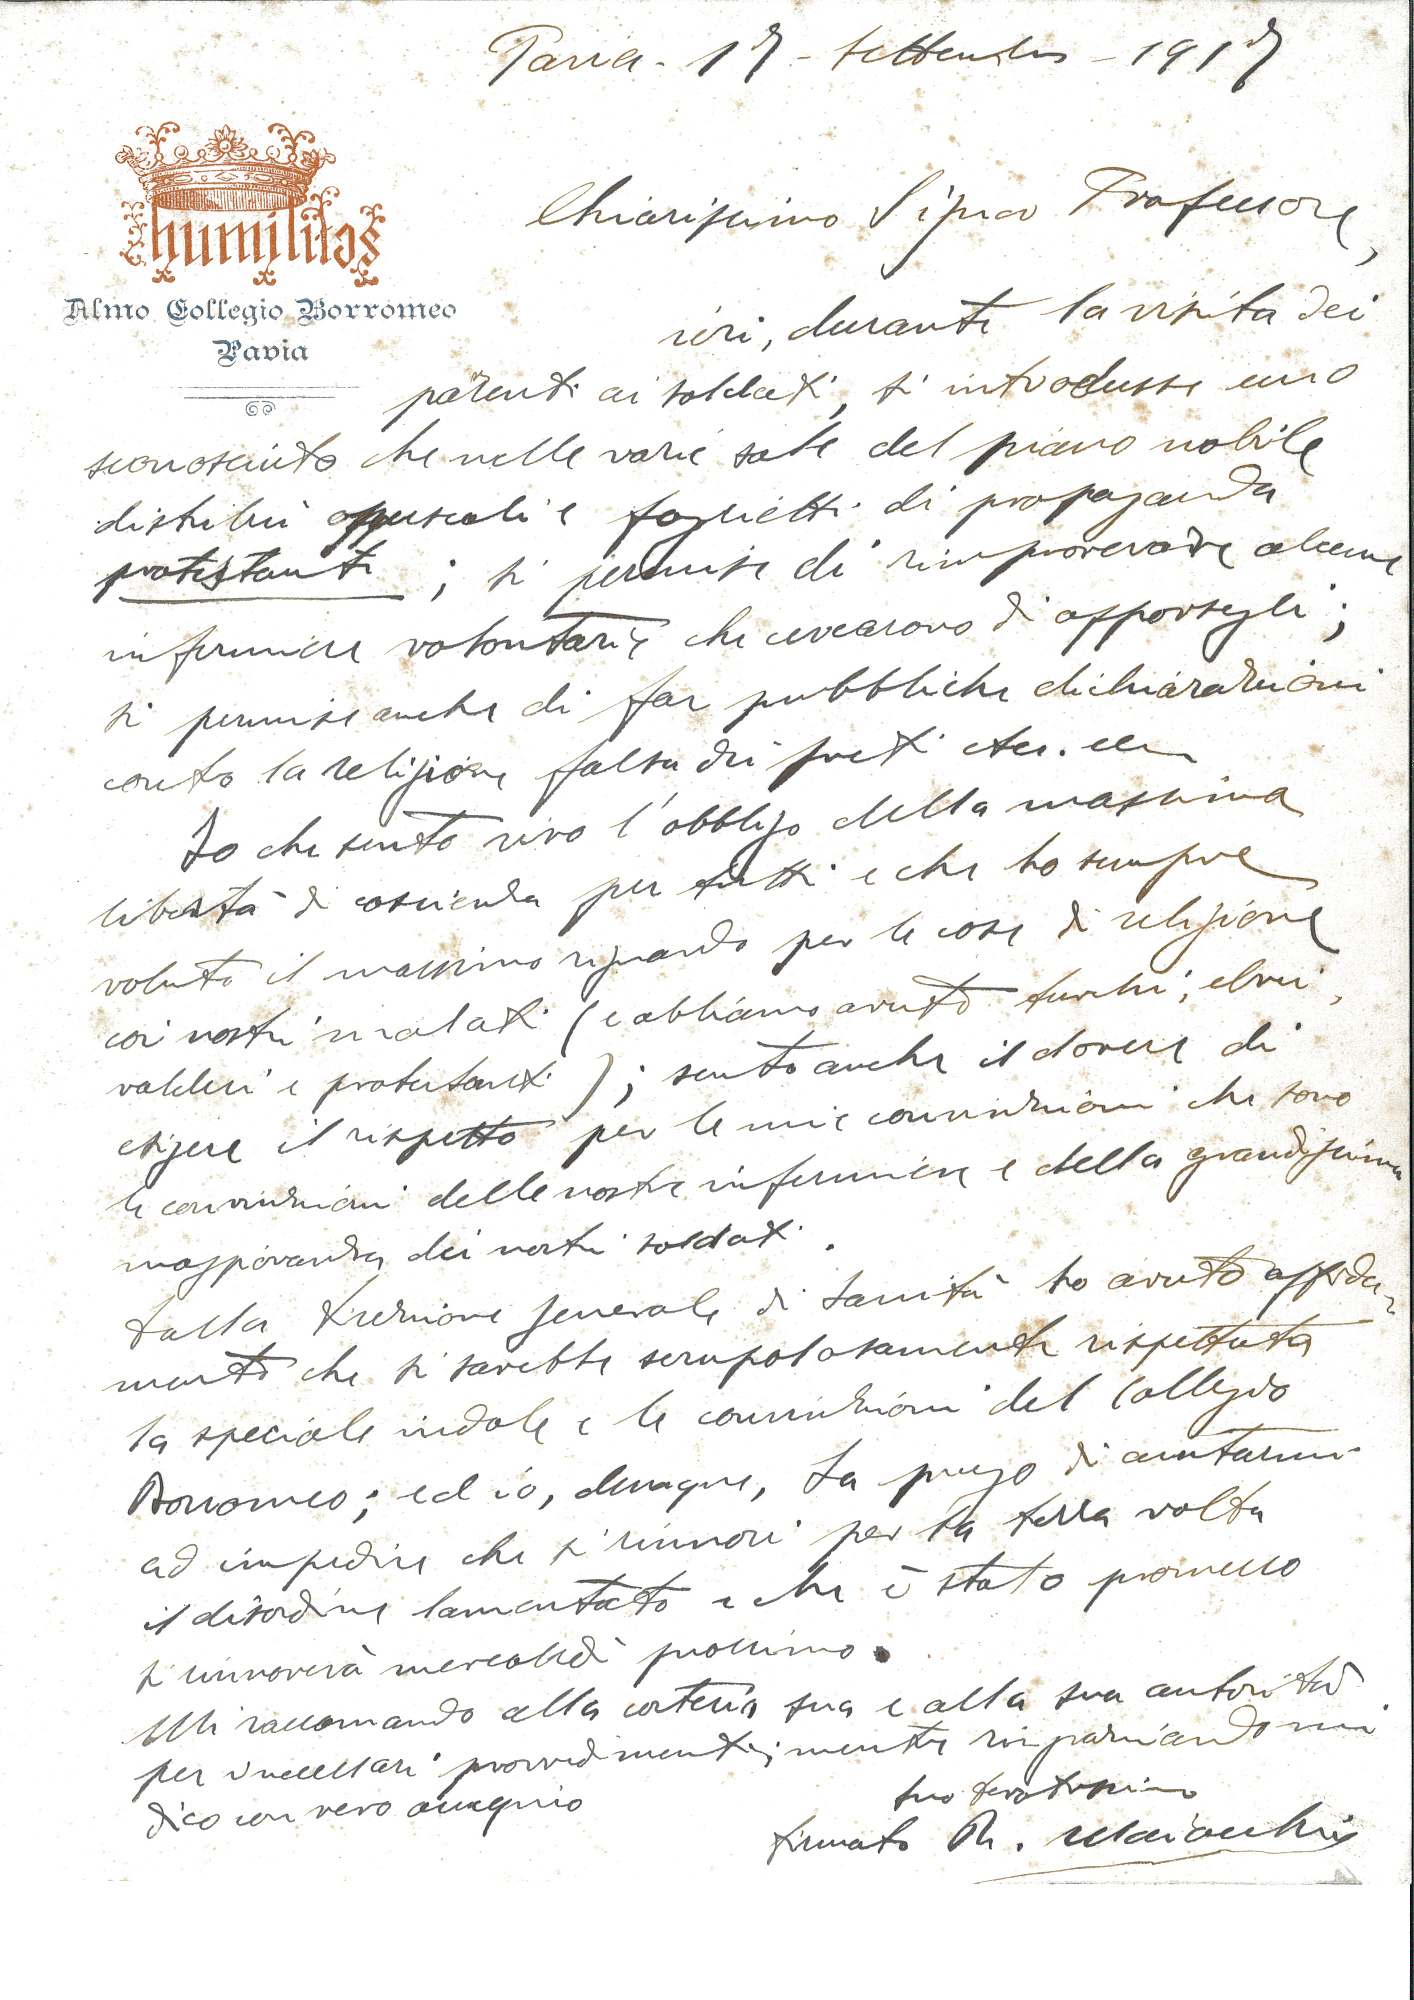 Pavia - 17 - settembre - 1917
humilitas
Almo Collegio Borromeo
Pavia
Chiarissimo Signor Professore,
ieri, durante la visita dei
parenti ai soldati, si introdusse uno
sconosciuto che nelle varie sale del piano nobile
distribuì opuscoli e foglietti di propaganda
protestante ; si permise di rimproverare alcune
infermiere volontarie che cercarono di opporsegli;
si permise anche di far pubbliche dichiarazioni
contro la religione falsa dei preti etc. etc.
Io che sento vivo l'obbligo della massima
libertà di coscienza per tutti e che ho sempre
voluto il massimo riguardo per le cose di religione
coi nostri malati (e abbiamo avuto turchi, ebrei,
valdesi e protestanti); sento anche il dovere di
esigere il rispetto per le mie convinzioni che sono
le convinzioni delle nostre infermiere e della grandissima
maggioranza dei nostri soldati.
Dalla Direzione generale di Sanità ho avuto affida-
mento che si sarebbe scrupolosamente rispettata
la speciale indole e le convinzioni del Collegio
Borromeo; ed io, dunque, La prego di aiutarmi
ad impedire che si rinnovi per la terza volta
il disordine lamentato e che è stato promesso
si rinnoverà mercoledì prossimo.
Mi raccomando alla cortesia sua e alla sua autorità
per i necessari provvedimenti; mentre ringraziandomi
dico con vero ossequio
suo devotissimo
firmato R. Maiocchi